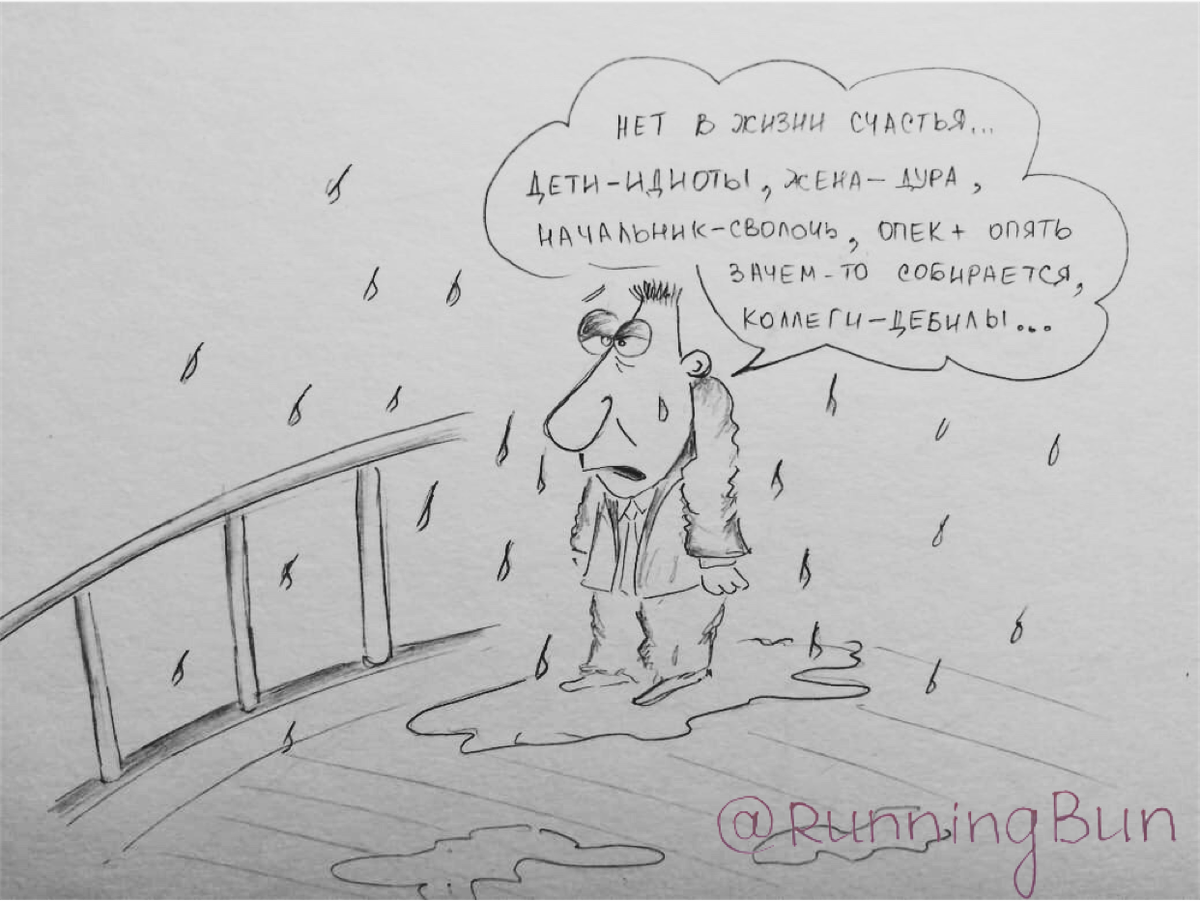 НЕТ В ЖИЗНИ СЧАСТЬЯ...
ДЕТИ-ИДИОТЫ, ЖЕНА-ДУРА,
НАЧАЛЬНИК-СВОЛОЧЬ, ОПЕК+ ОПЯТЬ
ЗАЧЕМ-ТО СОБИРАЕТСЯ,
КОЛЛЕГИ-ДЕБИЛЫ...
@RunningBun